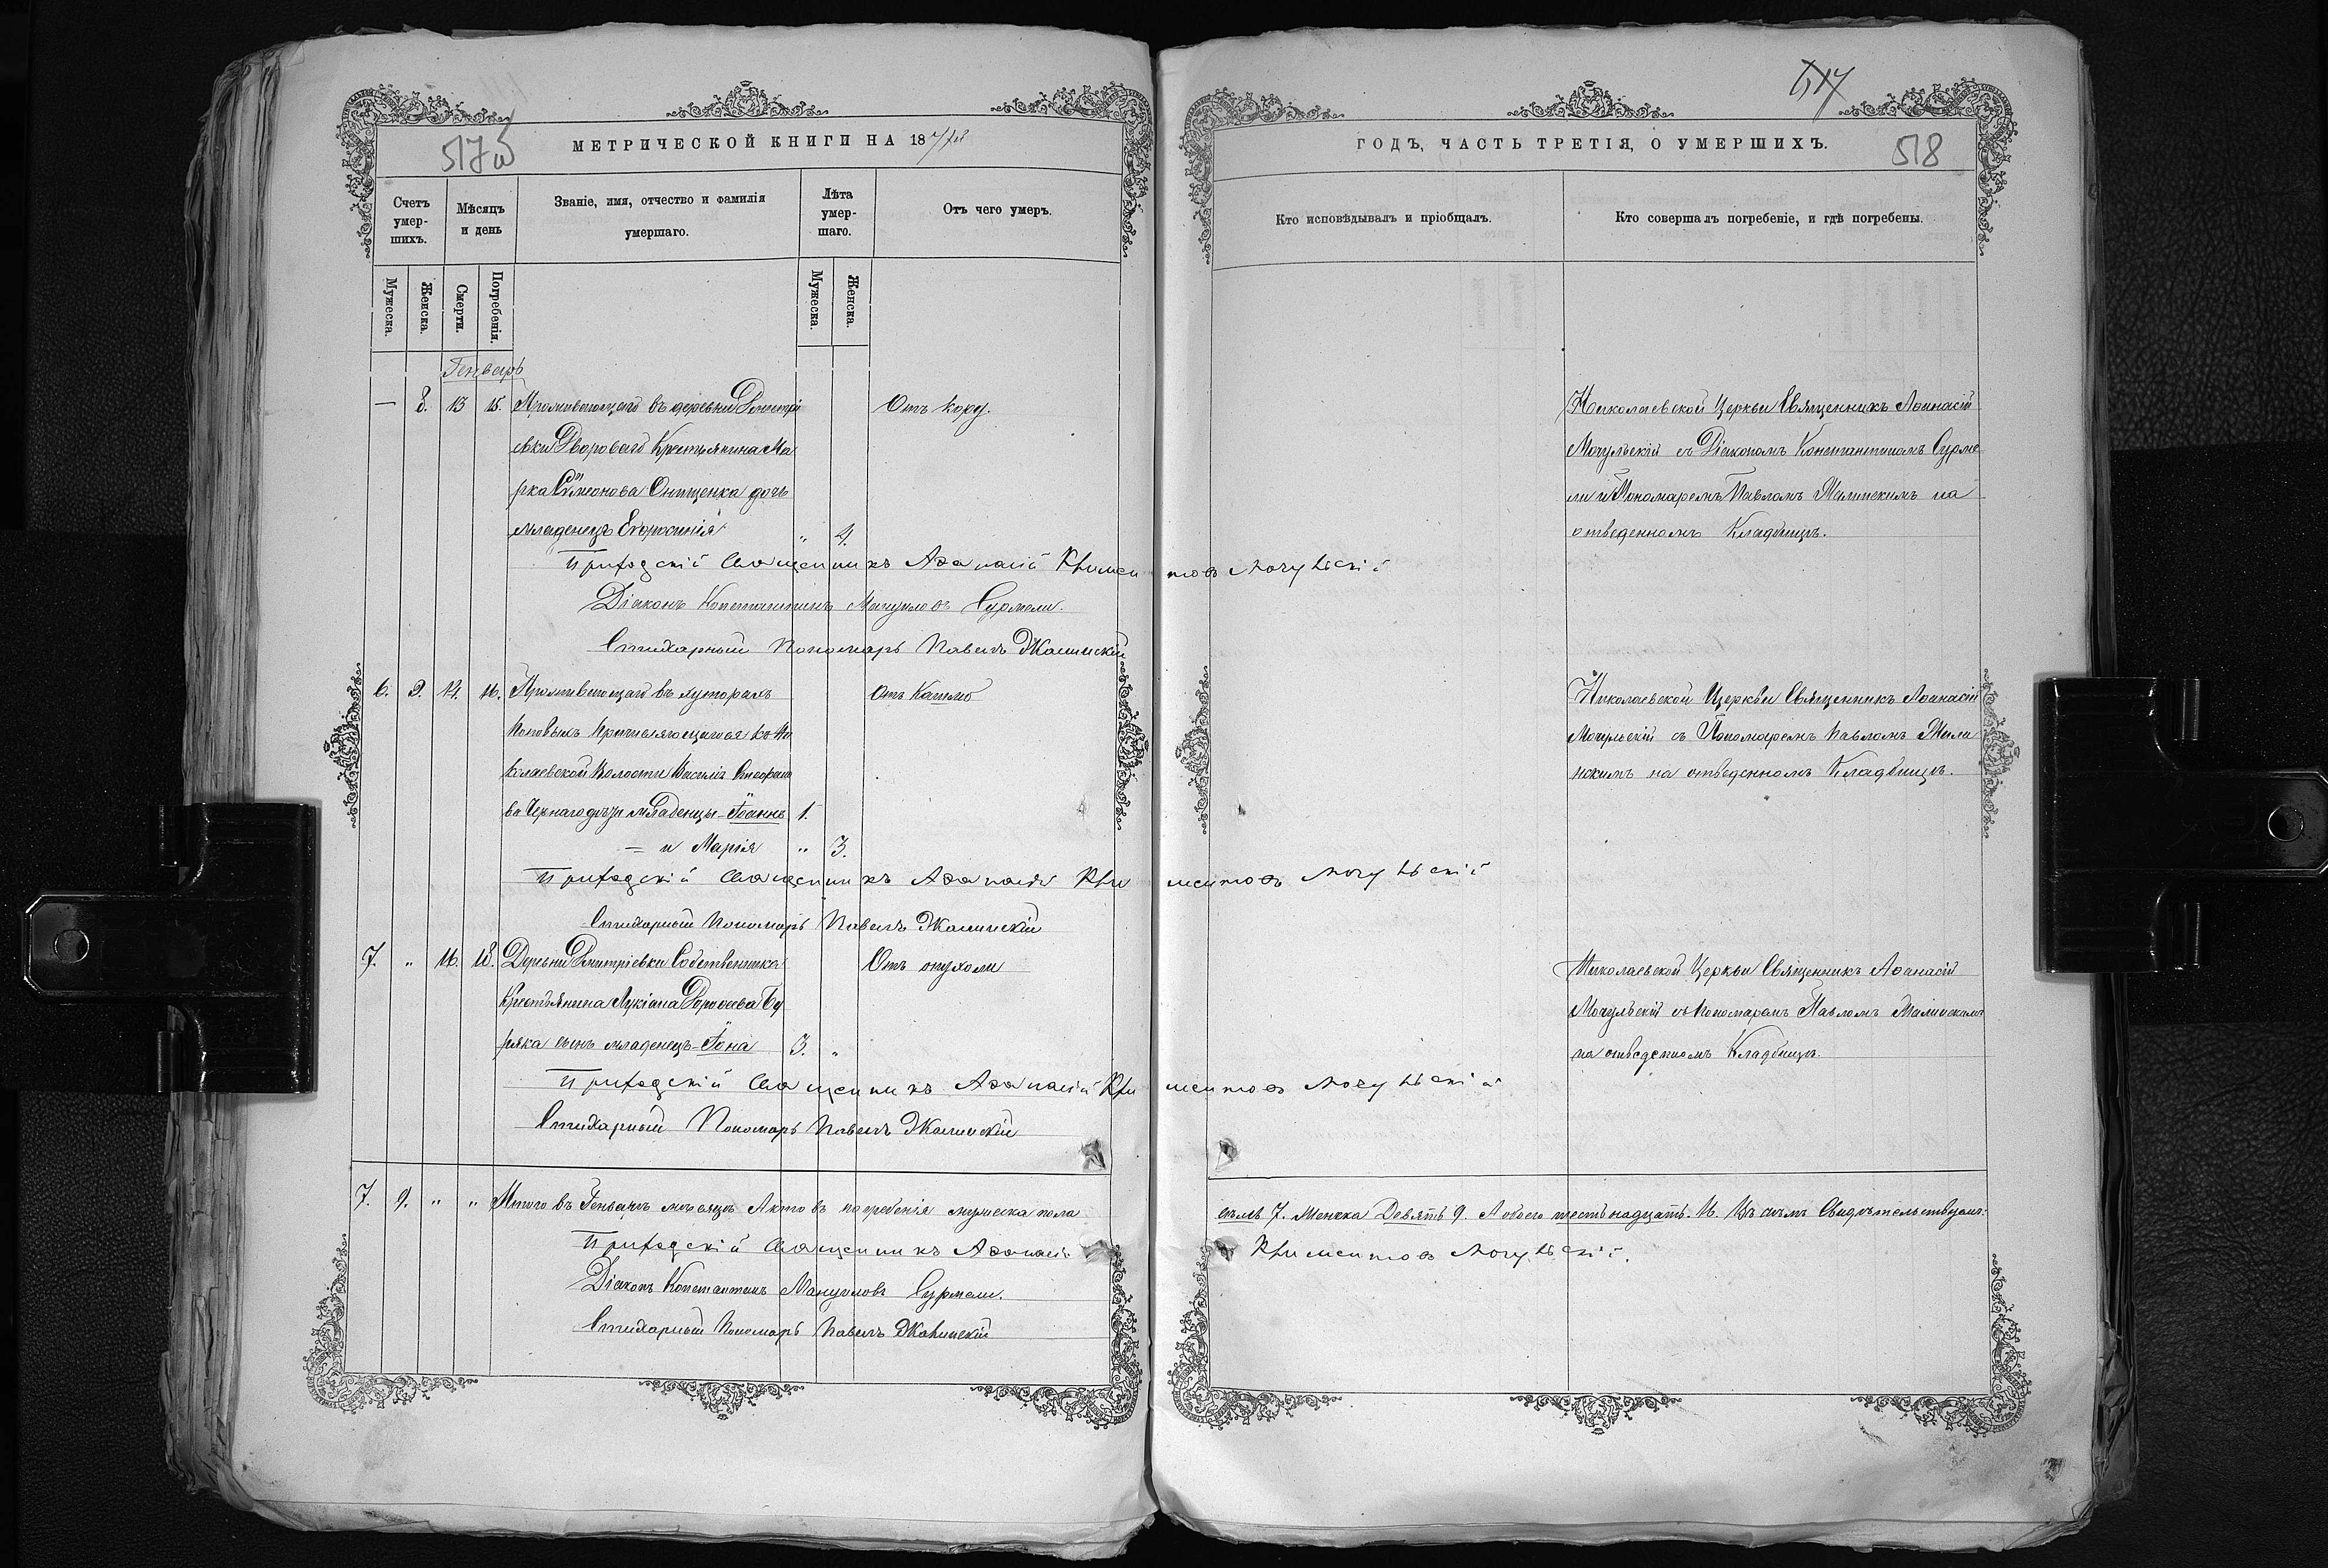 517об
МЕТРИЧЕСКОЙ КНИГИ НА 187
Счетъ умер-шихъ.
Мѣсяцъ и день
Званіе, имя, отчество и фамилія умершаго.
Лѣта умер-шаго.
Отъ чего умеръ.
Мужеска.
Женска.
Смерти.
Погребенія.
Мужеска.
Женска.
Генварь
— 8. 13 15. Проживающаго въ деревни Дмитрі Отъ кору.
евки Двороваго Крестьянина Ма
рка Симеонова Онищенка дочь
младенецъ Евфросинія " 4.
Приходскій Священникъ Аѳанасій Климентовъ Мочульскій
Діаконъ Константинъ Мануиловъ Сурмели.
Стихарный Пономарь Павелъ Жалинскій
6. 9. 14. 16. Проживающаго въ хуторахъ Отъ Кашлю
Поповыхъ Причисляющагося къ Ни
колаевской Волости Василія Стефано
ва Чернаго дѣти младенцы – Іоаннъ 1.
= и Марія " 3.
Приходскій Священникъ Аѳанасій Климентовъ Мочульскій
Стихарный Пономарь Павелъ Жалинскій
7. " 16. 18. Деревни Дмитріевки Собственника Отъ опухоли
Крестьянина Лукіана Дороѳеева Бу
ряка сынъ младенецъ – Іона 3. "
Приходскій Священникъ Аѳанасій Климентовъ Мочульскій
Стихарный Пономарь Павелъ Жалинскій
7. 9. " " Итого въ Генварѣ мѣсяцѣ Актовъ погребенія мужеска пола
Приходскій Священникъ Аѳанасій
Діаконъ Константинъ Мануиловъ Сурмели.
Стихарный Пономарь Павелъ Жалинскій
517
518
ГОДЪ, ЧАСТЬ ТРЕТІЯ, О УМЕРШИХЪ.
Кто исповѣдывалъ и пріобщалъ.
Кто совершалъ погребеніе, и гдѣ погребены.
Николаевской Церкви Священникъ Аѳанасій
Мочульскій съ Діакономъ Константиномъ Сурме
ли и Пономаремъ Павломъ Жалинскимъ на
отведенномъ Кладбищѣ.
Николаевской Церкви Священникъ Аѳанасій
Мочульскій съ Пономаремъ Павломъ Жали
нскимъ на отведенномъ Кладбищѣ.
Николаевской Церкви Священникъ Аѳанасій
Мочульскій съ Пономаремъ Павломъ Жалинскимъ
на отведенномъ Кладбищѣ.
семь 7. Женска Девять 9. А обоего шестьнадцать. 16. Въ чемъ Свидѣтельствуемъ:
Климентовъ Мочульскій.